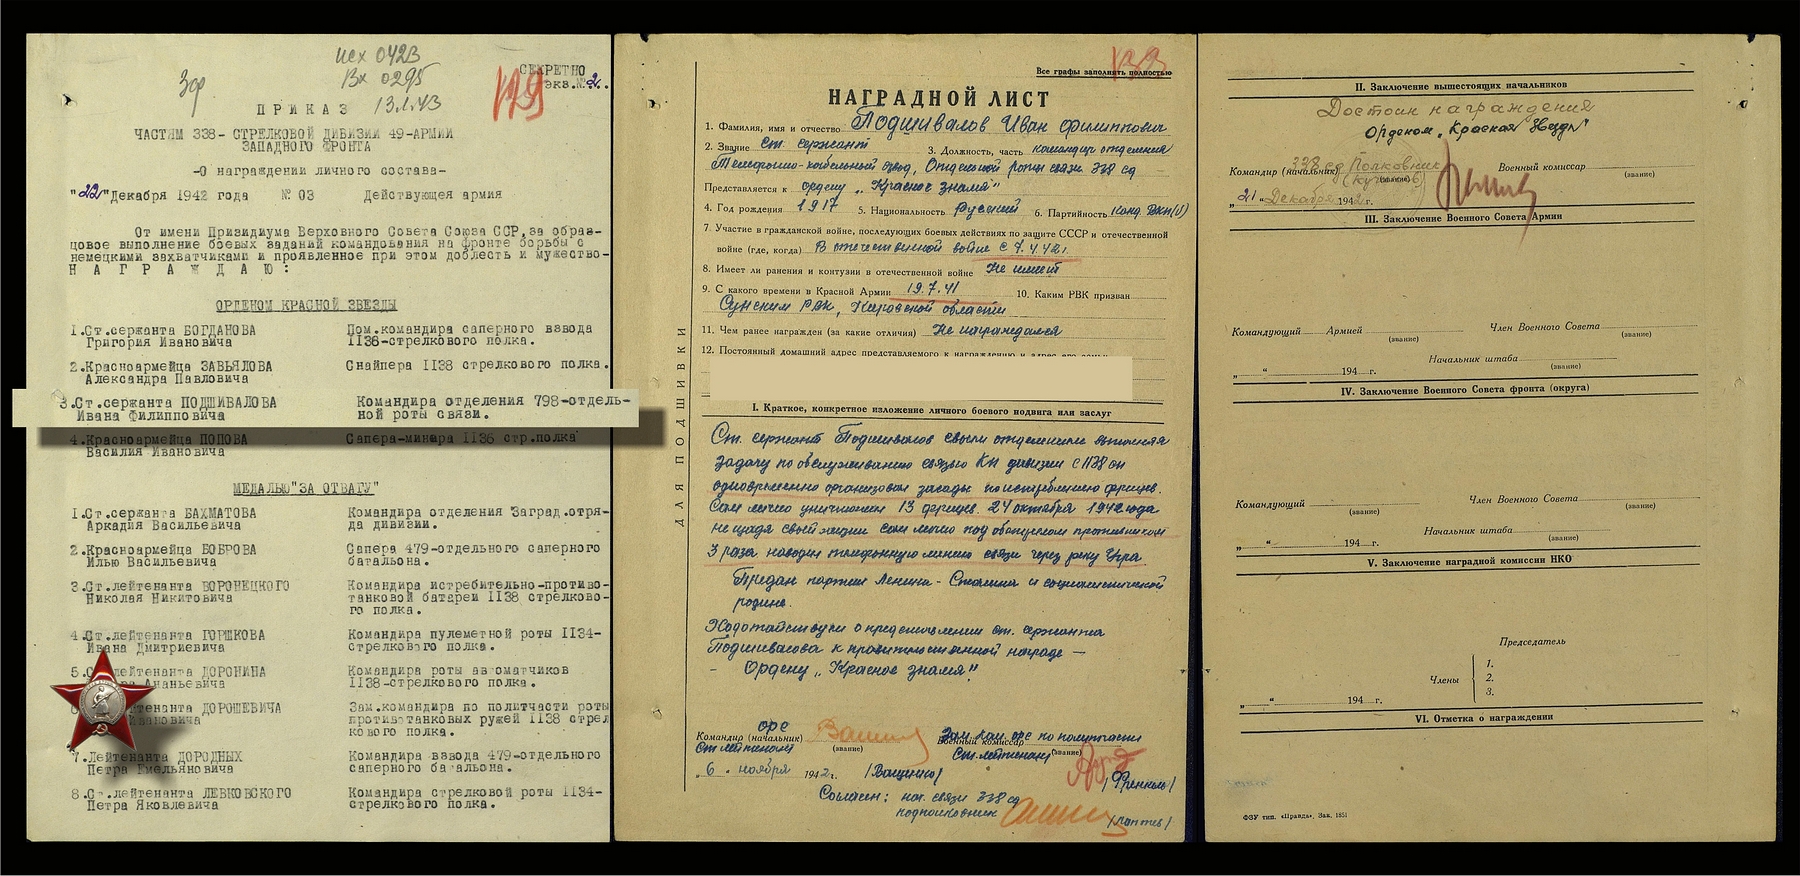 исх 0423
Вх 0295
13.1.43
СЕКРЕТНО
экз.№ 2.
ПРИКАЗ
ЧАСТЯМ 338- СТРЕЛКОВОЙ ДИВИЗИИ 49-АРМИИ
ЗАПАДНОГО ФРОНТА
-О награждении личного состава-
"22" Декабря 1942 года № 03 Действующая армия
От имени Призидиума Верховного Совета Союза ССР,за образ-
цовое выполнение боевых заданий командования на фронте борьбы с
немецкими захватчиками и проявленное при этом доблесть и мужество-
Н А Г Р А Ж Д А Ю :
ОРДЕНОМ КРАСНОЙ ЗВЕЗДЫ
1.Ст.сержанта БОГДАНОВА Пом.командира саперного взвода
Григория Ивановича 1136-стрелкового полка.
2.Красноармейца ЗАВЬЯЛОВА Снайпера 1138 стрелкового полка.
Александра Павловича
3.Ст.сержанта ПОДШИВАЛОВА Командира отделения 798-отдель-
Ивана Филипповича ной роты связи.
4.Красноармейца ПОПОВА Сапера-минера 1136 стр.полка
Василия Ивановича
МЕДАЛЬЮ "ЗА ОТВАГУ"
1.Ст.сержанта БАХМАТОВА Командира отделения Заград.отря-
Аркадия Васильевича да дивизии.
2.Красноармейца БОБРОВА Сапера 479-отдельного саперного
Илью Васильевича батальона.
3.Ст.лейтенанта ВОРОНЕЦКОГО Командира истребительно-противо-
Николая Никитовича танковой батареи 1138 стрелково-
го полка.
4.Ст.лейтенанта ГОРШКОВА Командира пулеметной роты 1134-
Ивана Дмитриевича стрелкового полка.
5.Ст.лейтенанта ДОРОНИНА Командира роты автоматчиков
Ананьевича 1138-стрелкового полка.
лейтенанта ДОРОШЕВИЧА Зам.командира по политчасти роты
Ивановича противотанковых ружей 1138 стрел
кового полка.
7.Лейтенанта ДОРОДНЫХ Командира взвода 479-отдельного
Петра Емельяновича саперного батальона.
8.Ст.лейтенанта ЛЕВКОВСКОГО Командира стрелковой роты 1134-
Петра Яковлевича стрелкового полка.
ДЛЯ ПОДШИВКИ
Все графы заполнять полностью
НАГРАДНОЙ ЛИСТ
1. Фамилия, имя и отчество Подшивалов Иван Филиппович
2. Звание Ст. сержант 3. Должность, часть командир отделения
Телефонно-кабельный взвод, Отдельной роты связи 338 сд
Представляется к ордену „Красное знамя"
4. Год рождения 1917 5. Национальность Русский 6. Партийность Канд. ВКП(б)
7. Участие в гражданской войне, последующих боевых действиях по защите СССР и отечественной
войне (где, когда) В отечественной войне с 7.4.42г.
8. Имеет ли ранения и контузии в отечественной войне Не имеет
9. С какого времени в Красной Армии 19.7.41 10. Каким РВК призван
Сунским РВК, Кировской области
11. Чем ранее награжден (за какие отличия) Не награждался
12. Постоянный домашний адрес представляемого к награждению и адрес его семьи
I. Краткое, конкретное изложение личного боевого подвига или заслуг
Ст. сержант Подшивалов своим отделением выполняя
задачу по обслуживанию связью КП дивизии с 1138 сп
одновременно организовал засады по истреблению фрицев.
Сам лично уничтожил 13 фрицев. 24 октября 1942 года
не щадя своей жизни сам лично под обстрелом противника
3 раза наводил телефонную линию связи через реку Угра.
Предан партии Ленина-Сталина и социалистической
родине.
Ходатайствую о представлении ст. сержанта
Подшивалова к правительственной награде —
- Ордену „Красное знамя".
Командир (начальник) ОРС Зам. ком. орс по политчасти
Военный комиссар
Ст. лейтенант (звание) Ст. лейтенант (звание)
„6" ноября 1942г. /Ващенко/ /Френкель/
Согласен: нач. связи 338 сд
подполковник /Лаптев/
II. Заключение вышестоящих начальников
Достоин награждения
Орденом „Красная Звезда"
Командир (начальник) 338 сд Полковник Военный комиссар
(звание) (звание)
(Кучинев)
„21" Декабря 1942г.
III. Заключение Военного Совета Армии
Командующий Армией Член Военного Совета
(звание) (звание)
Начальник штаба
„ " 194 г. (звание)
IV. Заключение Военного Совета фронта (округа)
Командующий Член Военного Совета
(звание) (звание)
Начальник штаба
„ " 194 г. (звание)
V. Заключение наградной комиссии НКО
Председатель
1.
Члены 2.
3.
„ " 194 г.
VI. Отметка о награждении
ФЗУ тип. «Правда», Зак. 1851